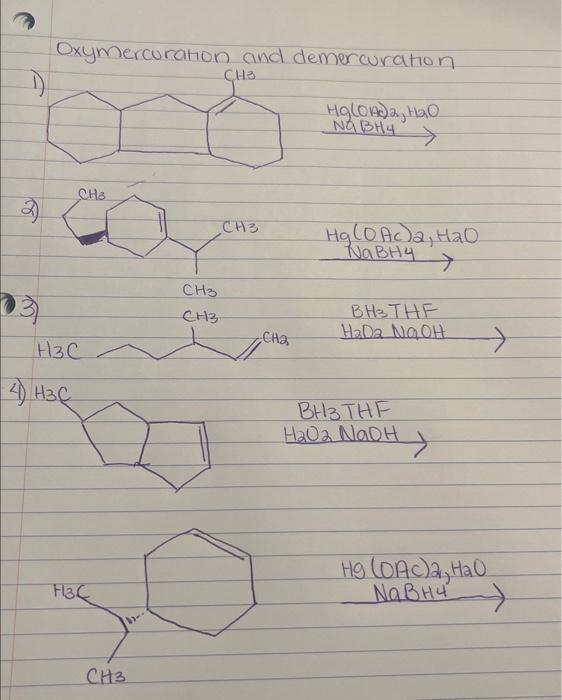 Oxymercuration and demercuration
1)
CH3
Hg(OAc)2, H2O
NaBH4
2)
CH3
CH3
CH3
Hg(OAc)2, H2O
NaBH4
3)
CH3
H3C
CH2
BH3THF
H2O2 NaOH
4) H3C
BH3THF
H2O2 NaOH
H3C
CH3
Hg(OAc)2, H2O
NaBH4